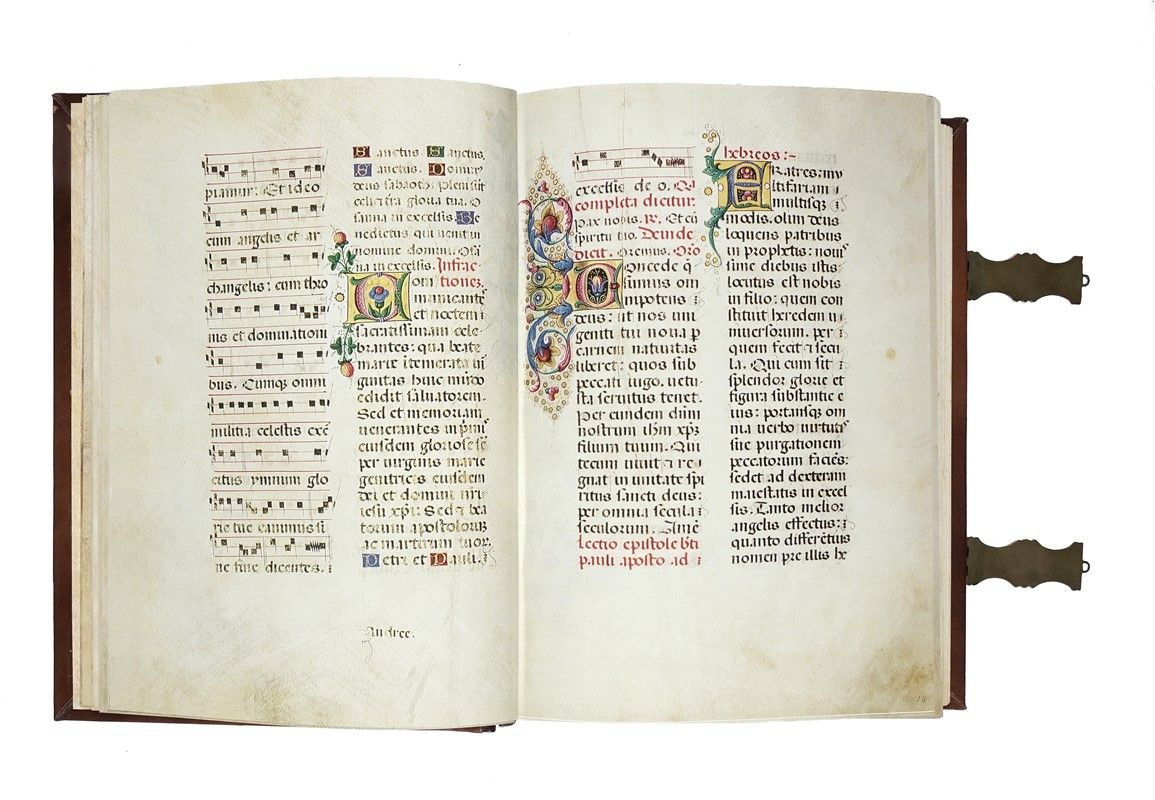 piamur. Et ideo
cum angelis et ar
changelis: cum thro
nis et domination
bus. Cumqz omni
militia celestis exē
citus ymnum glo
rie tue canimus si
ne fine dicentes.
Sanctus. Sanctus.
Sanctus. Domin
deus sabaoth. Pleni sūt
celi et terra gloria tua. O
sanna in excelsis. Be
nedictus qui uenit in
nomine domini. Osā
na in excelsis. Infrac
tiones.
Com
municantes
et noctem
sacratissimam cele
brantes: qua beate
marie intemerata uir
ginitas huic mūdo
edidit saluatorem.
Sed et memoriam
uenerantes in primis
eiusdem gloriose sē
per uirginis marie
genitricis eiusdem
dei et domini nri
iesu xpi: Sed et bea
torum apostolorum
ac martirum tuor.
Petri et Pauli.
Andree.
excelsis de o.
completa dicitur.
Pax nobis. R. Et cū
spiritu tuo. Deinde
dicit. Oremus. Oro
Concede q̄
sumus om
nipotens
deus: ut nos uni
geniti tui noua p
carnem natiuitas
liberet: quos sub
peccati iugo. uetu
sta seruitus tenet.
Per eundem dnm
nostrum ihm xpm
filium tuum. Qui
tecum uiuit et reg
gnat in unitate spi
ritus sancti deus:
per omnia secula
seculorum. Amē
Lectio epistole bti
pauli aposto. ad
hebreos:~
Fratres: mu
ltifariam
multisqz
modis. olim deus
loquens patribus
in prophetis: nouis
sime diebus istis
locutus est nobis
in filio: quem con
stituit heredem u
niuersorum. per
quem fecit et secu
la. Qui cum sit
splendor glorie et
figura substantie e
ius: portansqz om
nia uerbo uirtutis
sue purgationem
peccatorum faciēs:
sedet ad dexteram
maiestatis in excel
sis. Tanto melior
angelis effectus:
quanto differētius
nomen pre illis he